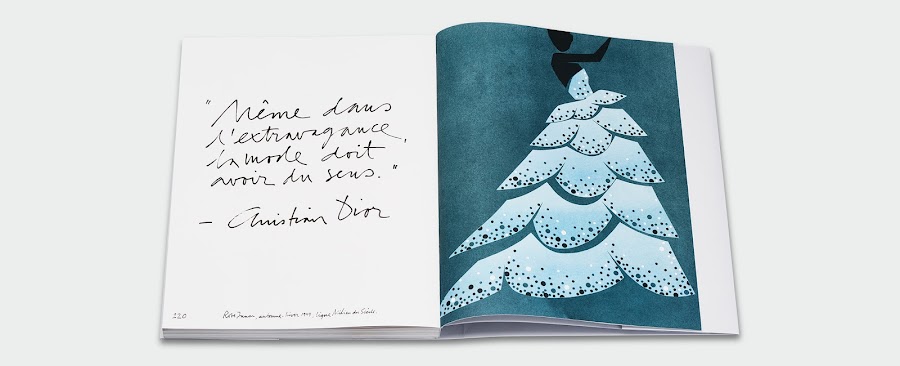 "Même dans
l'extravagance,
la mode doit
avoir du sens."
– Christian Dior
120
Robe Junon, automne-hiver 1949, ligne Milieu du Siècle.